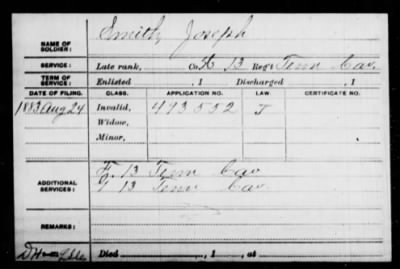 NAME OF SOLDIER: Smith, Joseph
SERVICE: Late rank, Co. K 13 Reg't Tenn Cav.
TERM OF SERVICE: Enlisted , 1 Discharged , 1
DATE OF FILING. CLASS. APPLICATION NO. LAW CERTIFICATE NO.
1883 Aug 24 Invalid, 493.552 J
Widow,
Minor,
ADDITIONAL SERVICES: F. 13 Tenn Cav
G 13 Tenn Cav
REMARKS:
Died , 1 , at